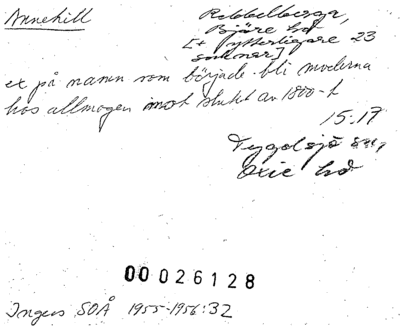 Annehill
Rebbelberga,
Bjäre hd
[+ ytterligare 23
socknar]
ex på namn som började bli moderna
hos allmogen mot slutet av 1800-t
15.17
Tygelsjö sn,
Oxie hd
00026128
Ingers SOÅ 1955-1956:32